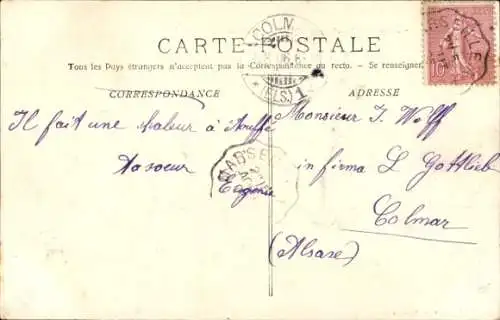 CARTE POSTALE
Tous les Pays étrangers n'acceptent pas la Correspondance au recto. — Se renseigner
CORRESPONDANCE
ADRESSE
Il fait une chaleur à étouffe
Ta soeur
Eugenie
Monsieur J. Wolff
in firma L. Gottlieb
Colmar
(Alsace)
COLM
(ELS.) 1
MARSE
MARSEILLE
10